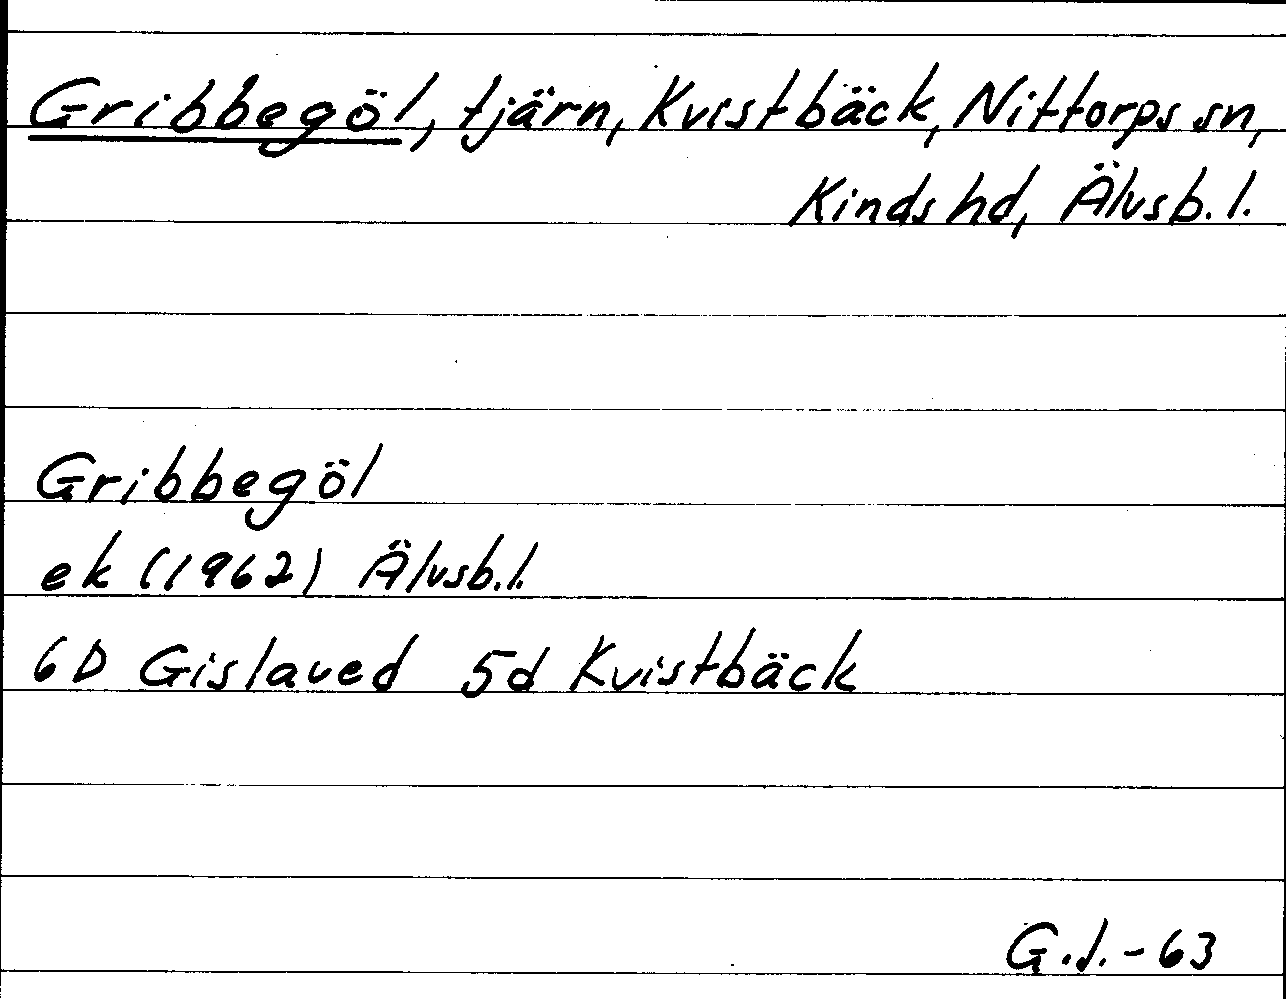 Gribbegöl, tjärn, Kvistbäck, Nittorps sn,
Kinds hd, Älvsb. l.
Gribbegöl
ek (1962) Älvsb. l.
6D Gislaved 5d Kvistbäck
G.J.-63